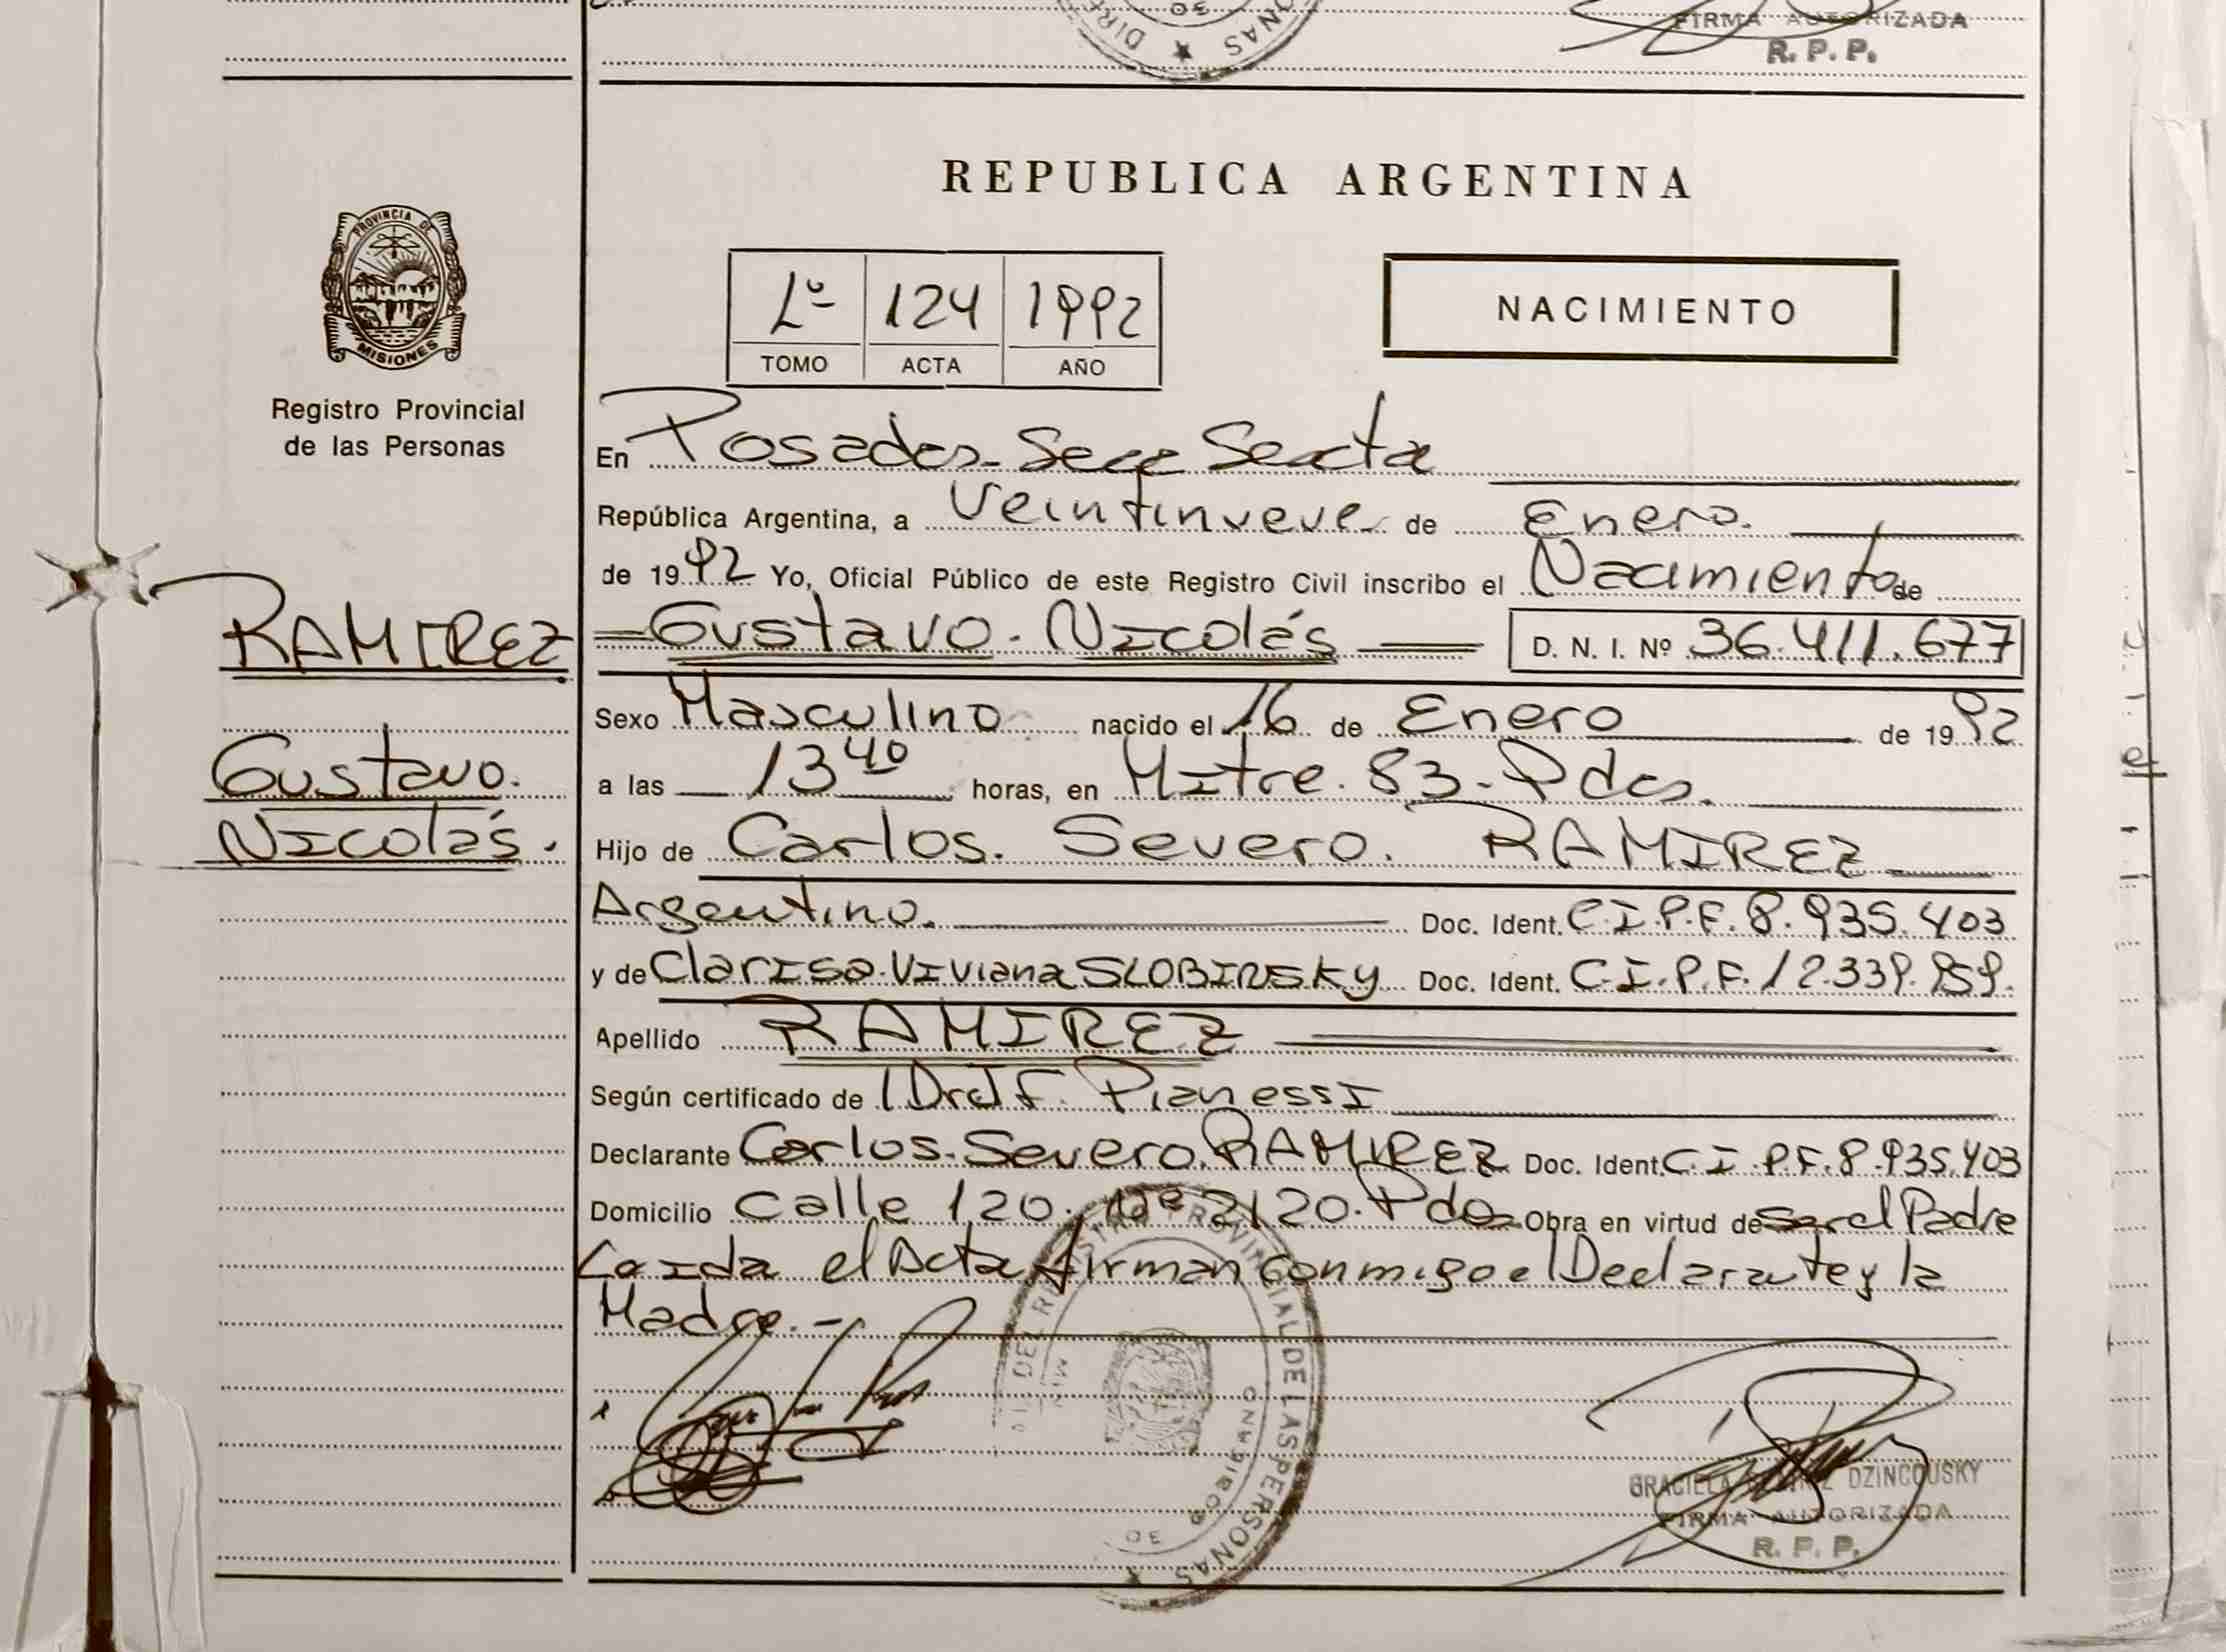 FIRMA AUTORIZADA
R. P. P.
PROVINCIA DE
MISIONES
Registro Provincial
de las Personas
RAMIREZ
Gustavo.
Nicolás.
REPUBLICA ARGENTINA
Lº 124 1992
TOMO ACTA AÑO
NACIMIENTO
En Posadas - Secc Sexta
República Argentina, a Veintinueve de Enero.
de 1992 Yo, Oficial Público de este Registro Civil inscribo el Nacimiento de
Gustavo. Nicolás D. N. I. Nº 36.411.677
Sexo Masculino nacido el 16 de Enero de 1992
a las 13 40 horas, en Mitre. 83 - Pdas.
Hijo de Carlos. Severo. RAMIREZ
Argentino. Doc. Ident. C.I.P.F. 8.935.403
y de Clarisa. Viviana SLOBINSKY Doc. Ident. C.I.P.F. 12.339.959.
Apellido RAMIREZ
Según certificado de Pianessi
Declarante Carlos. Severo. RAMIREZ Doc. Ident. C.I.P.F. 8.935.403
Domicilio Calle 120. Nº 2120. Pdas Obra en virtud de ser el Padre
Leida el Acta firman conmigo el Declarante y la
Madre. -
DEL REGISTRO PROVINCIAL DE LAS PERSONAS
GRACIELA DZINCOUSKY
FIRMA AUTORIZADA
R. P. P.